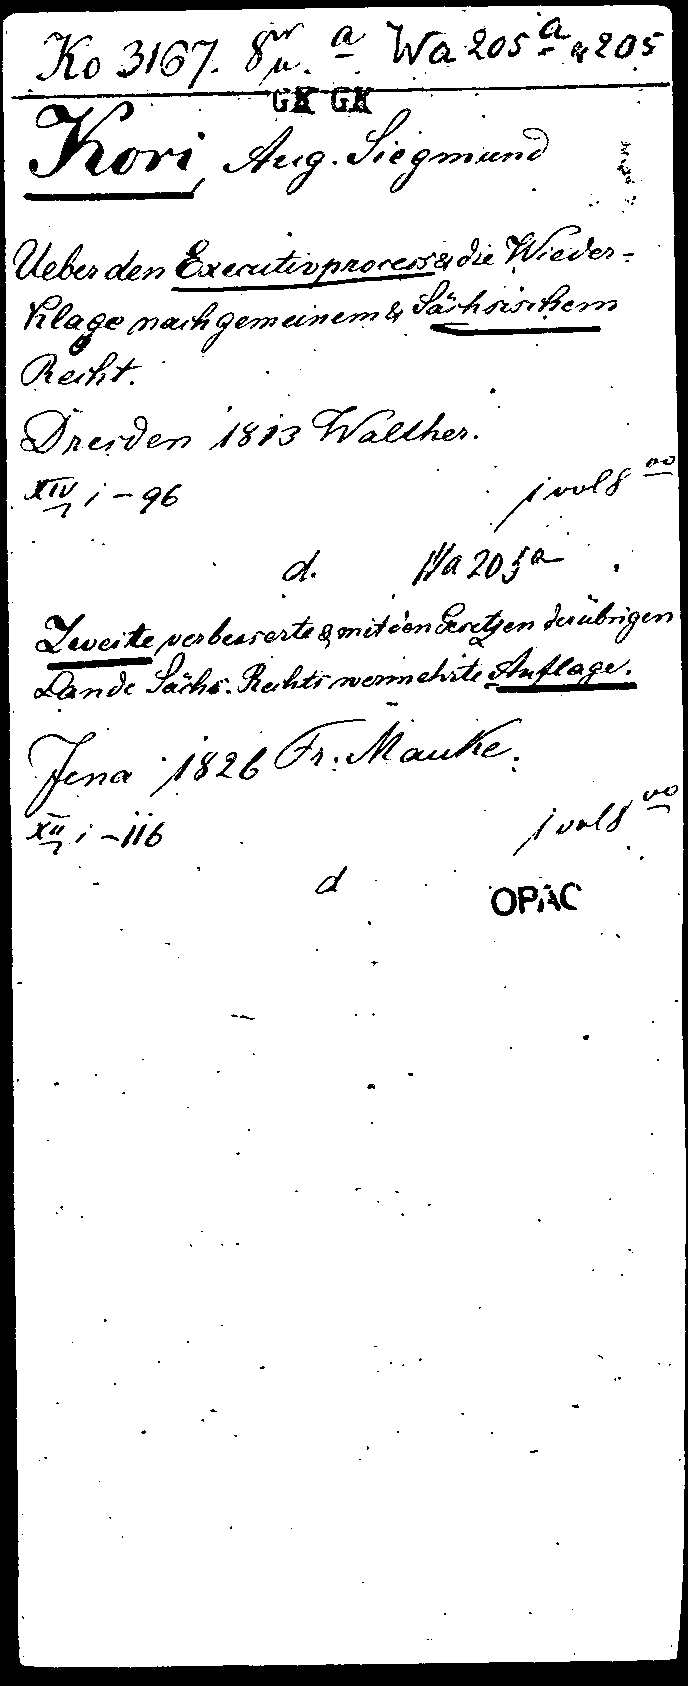 Ko 3167. 8vo u. a Wa 205a & 205
GK GK
Kori, Aug. Siegmund
Ueber den Executivprocess & die Wieder-
klage nach gemeinem & Sächsischem
Recht.
Dresden 1813 Walther.
XIV, i - 96 1 vol 8vo
d. Wa 205a
Zweite verbesserte & mit den Gesetzen der übrigen
Lande Sächs. Rechts vermehrte Auflage.
Jena 1826 Fr. Mauke.
XII, i - 116 1 vol 8vo
d OPAC